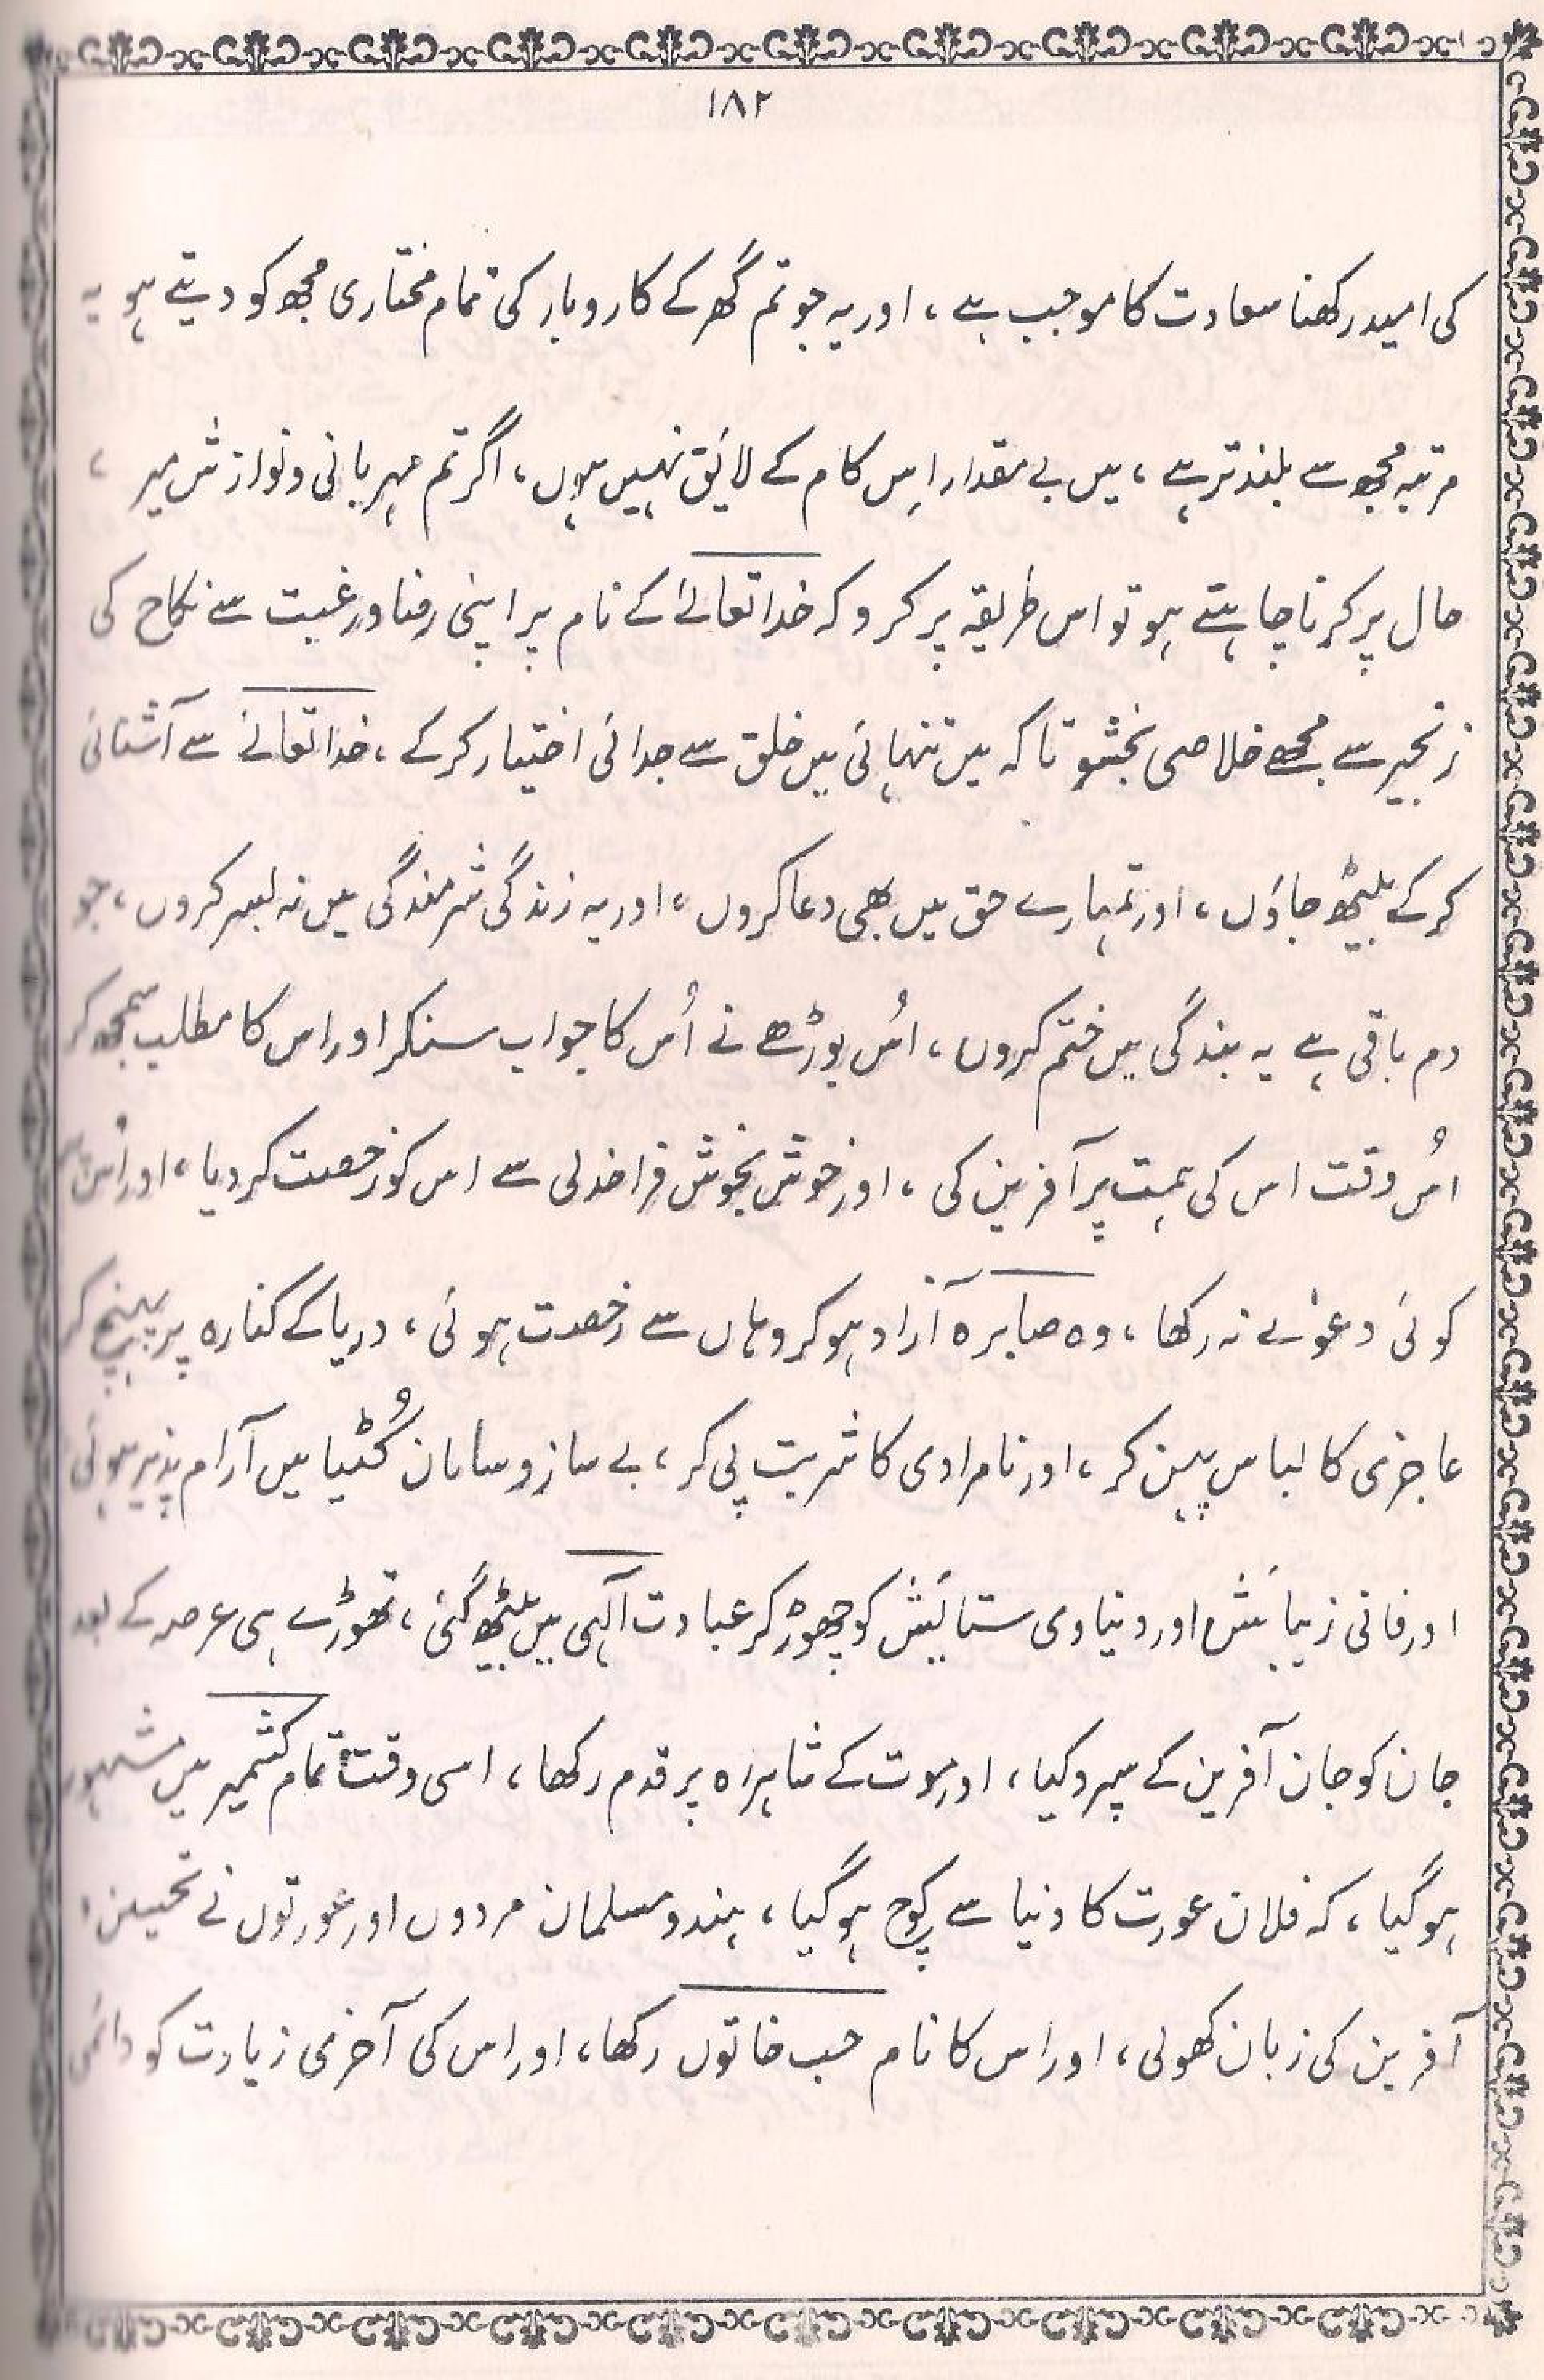 ۱۸۲
کی امید رکھنا سعادت کا موجب ہے ، اور یہ جو تم گھر کے کاروبار کی تمام مختاری مجھ کو دیتے ہو یہ
مرتبہ مجھ سے بلند تر ہے ، میں بے مقدار اِس کام کے لائق نہیں ہوں ، اگر تم مہربانی و نوازش میر
حال پر کرنا چاہتے ہو تو اس طریقہ پر کرو کہ خدا تعالےٰ کے نام پر اپنی رضا ورغبت سے نکاح کی
زنجیر سے مجھے خلاصی بخشو تاکہ میں تنہائی میں خلق سے جدائی اختیار کر کے ، خدا تعالےٰ سے آشنائی
کر کے بیٹھ جاؤں ، اور تمہارے حق میں بھی دعا کروں ، اور یہ زندگی شرمندگی میں نہ بسر کروں ، جو
دم باقی ہے یہ بندگی میں ختم کروں ، اُس بوڑھے نے اُس کا جواب سنکر اور اس کا مطلب سمجھ کر
اُس وقت اس کی ہمت پر آفرین کی ، اور خوش بخوش فراخدلی سے اس کو رخصت کر دیا ، اور اُس
کوئی دعوٰے نہ رکھا ، وہ صابرہ آزاد ہو کر وہاں سے رخصت ہوئی ، دریا کے کنارہ پر پہنچ کر
عاجزی کا لباس پہن کر ، اور نامرادی کا شربت پی کر ، بے ساز و سامان کُٹیا میں آرام پذیر ہوئی
اور فانی زیبائش اور دنیاوی ستائیش کو چھوڑ کر عبادت آلہی میں بیٹھ گئی ، تھوڑے ہی عرصہ کے بعد
جان کو جان آفرین کے سپرد کیا ، اور موت کے شاہراہ پر قدم رکھا ، اسی وقت تمام کشمیر میں مشہور
ہو گیا ، کہ فلان عورت کا دنیا سے کوچ ہو گیا ، ہندو مسلمان مردوں اور عورتوں نے تحسین و
آفرین کی زبان کھولی ، اور اس کا نام حبہ خاتوں رکھا ، اور اس کی آخری زیارت کو دائمی